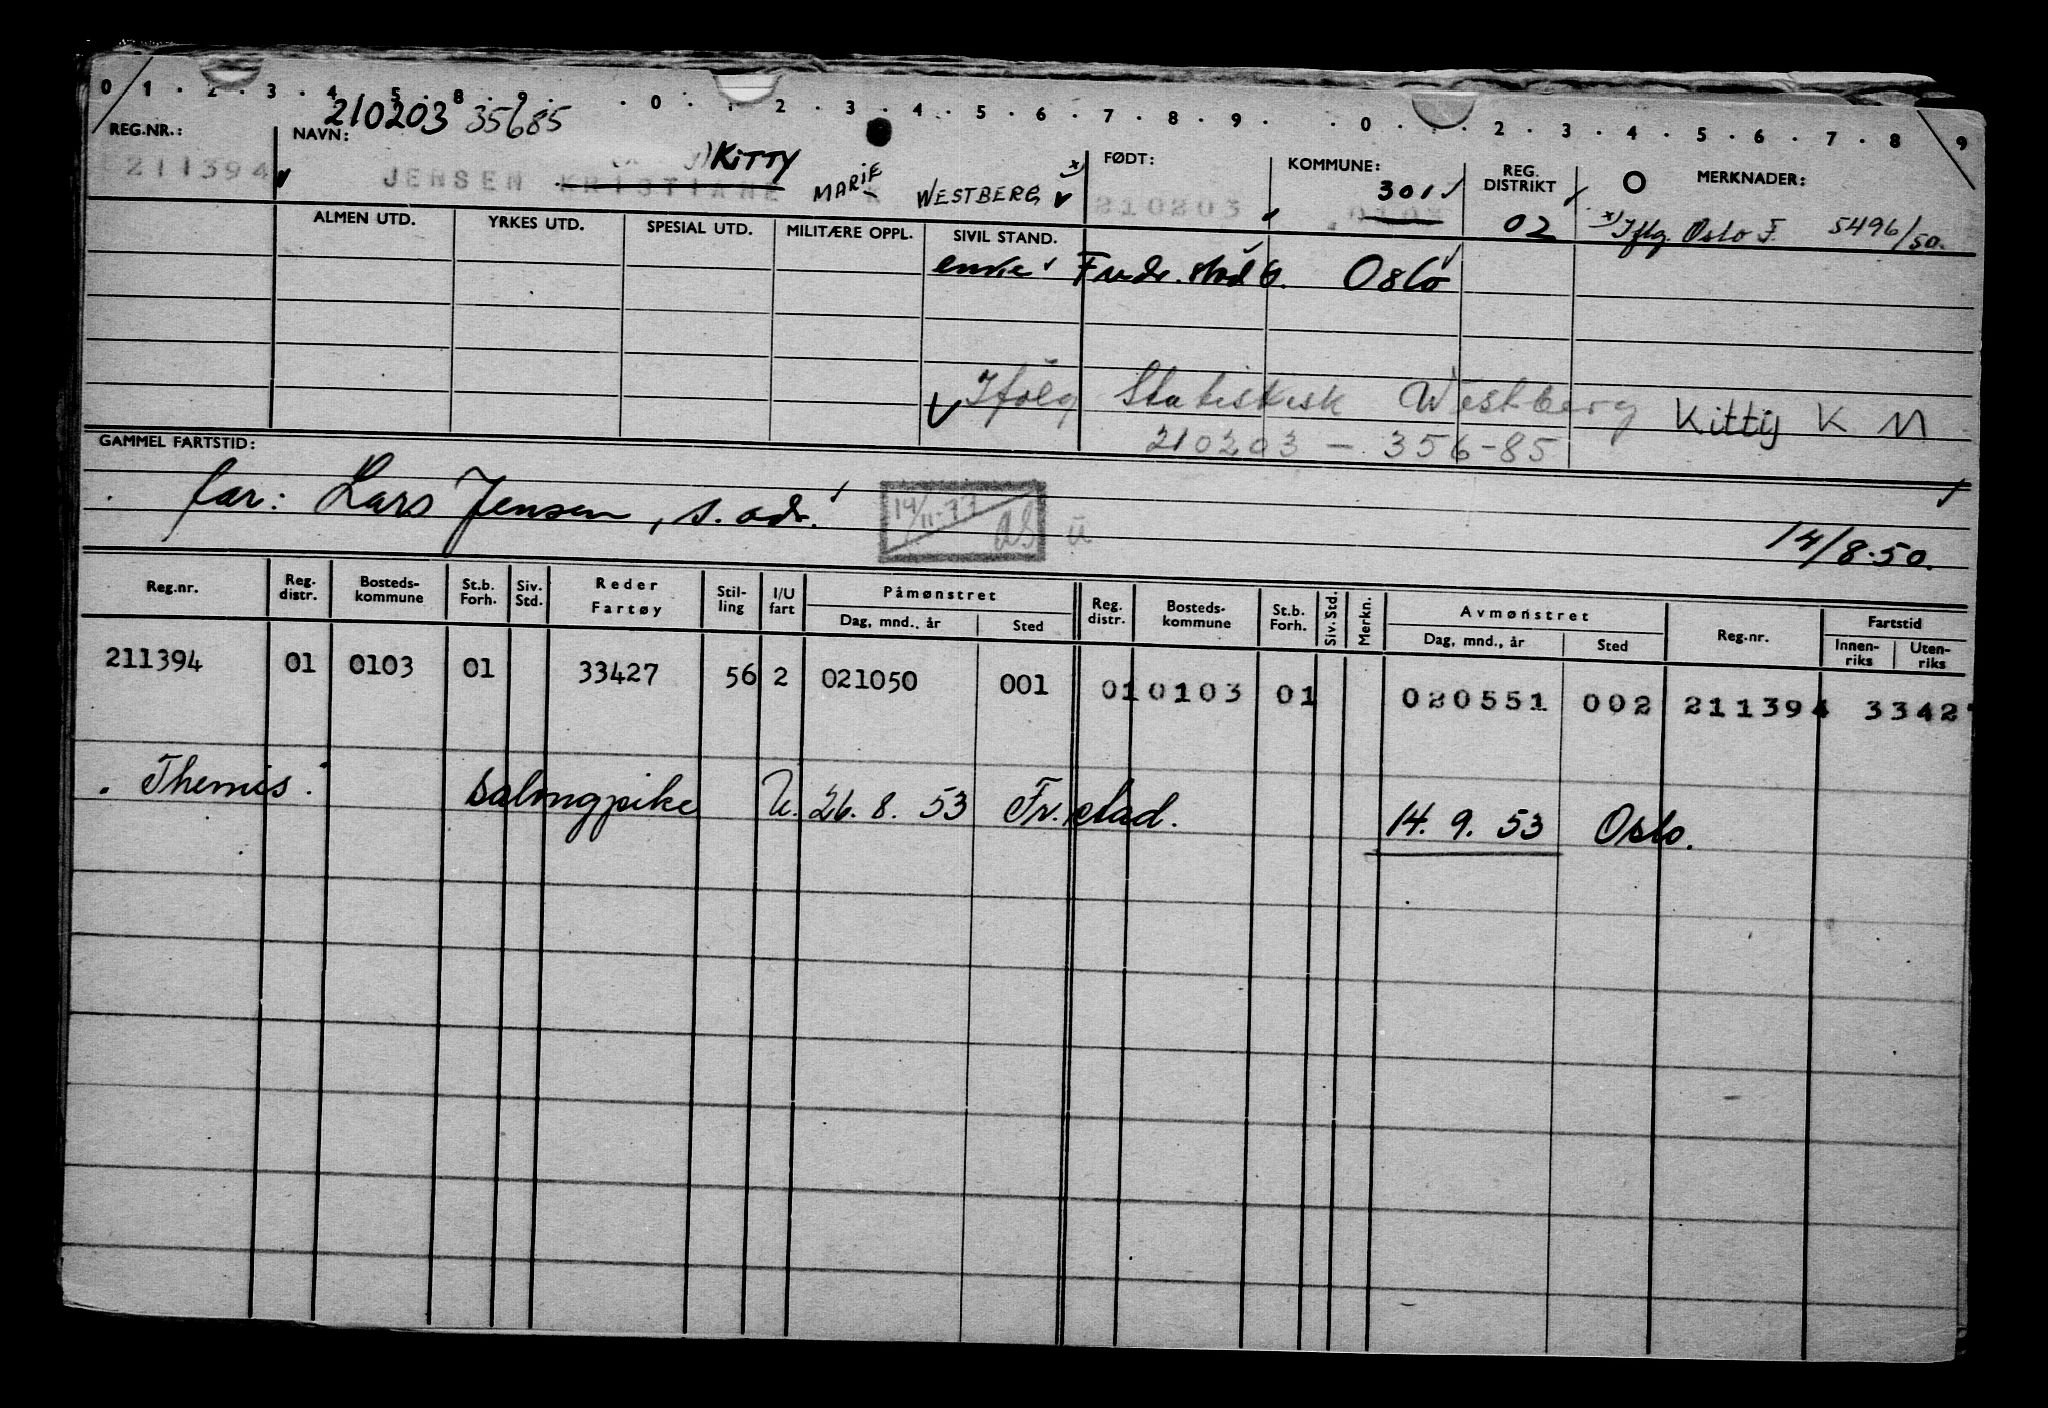 0 1 . 2 . 3 . 4 . 5 . 8 . 9 . . 0 . 1 . 2 . 3 . 4 . 5 . 6 . 7 . 8 . 9 . . 0 . 1 . 2 . 3 . 4 . 5 . 6 . 7 . 8 9
210203 35685
REG.NR.: NAVN: FØDT: KOMMUNE: REG. DISTRIKT O MERKNADER:
211394 JENSEN KRISTIANE KITTY MARIE K WESTBERG x) 210203 301 0103 02 x) Iflg. Oslo F. 5496/50.
ALMEN UTD. YRKES UTD. SPESIAL UTD. MILITÆRE OPPL. SIVIL STAND.
enke Fredr.stad b. Oslo
Ifølg Statistisk Westberg Kittij K M
210203 – 356-85
GAMMEL FARTSTID:
far: Lars Jensen, s. adr.
14/11-77
ü
14/8-50.
Reg.nr. Reg. distr. Bosteds-kommune St.b. Forh. Siv. Std. Reder Fartøy Stil-ling I/U fart Påmønstret Dag, mnd., år Sted Reg. distr. Bosteds-kommune St.b. Forh. Siv. Std. Merkn. Avmønstret Dag, mnd., år Sted Reg.nr. Fartstid Innen-riks Uten-riks
211394 01 0103 01 33427 56 2 021050 001 01 0103 01 080551 002 211394 3342
"Themis" salongpike U. 26.8.53 Fr.stad. 14.9.53 Oslo.